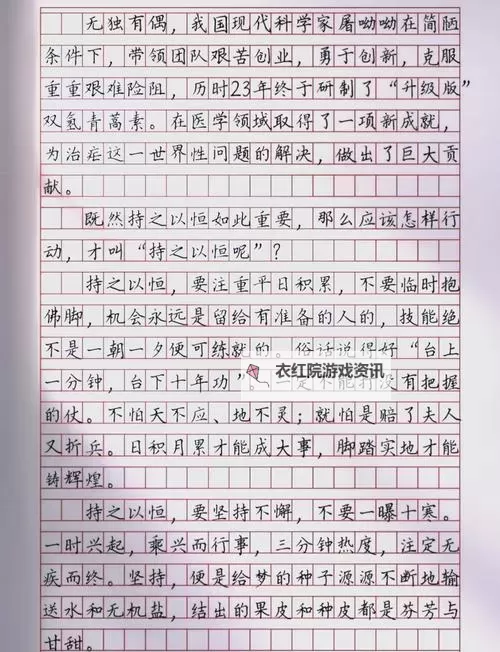 无独有偶，我国现代科学家屠呦呦在简陋
条件下，带领团队艰苦创业，勇于创新，克服
重重艰难险阻，历时23年终于研制了“升级版”
双氢青蒿素。在医学领域取得了一项新成就，
为治症这一世界性问题的解决，做出了巨大贡
献。
既然持之以恒如此重要，那么应该怎样行
动，才叫“持之以恒呢”？
持之以恒，要注重平日积累，不要临时抱
佛脚，机会永远是留给有准备的人的，技能绝
不是一朝一夕便可练就的。俗话说得好“台上
一分钟，台下十年功”，一定不能打没有把握
衣红院游戏资讯
的仗。不怕天不应、地不灵；就怕是赔了夫人
又折兵。日积月累才能成大事，脚踏实地才能
铸辉煌。
持之以恒，要坚持不懈，不要一曝十寒。
一时兴起，乘兴而行事，三分钟热度，注定无
疾而终。坚持，便是给梦的种子源源不断地输
送水和无机盐，结出的果皮和种皮都是芬芳与
甘甜。